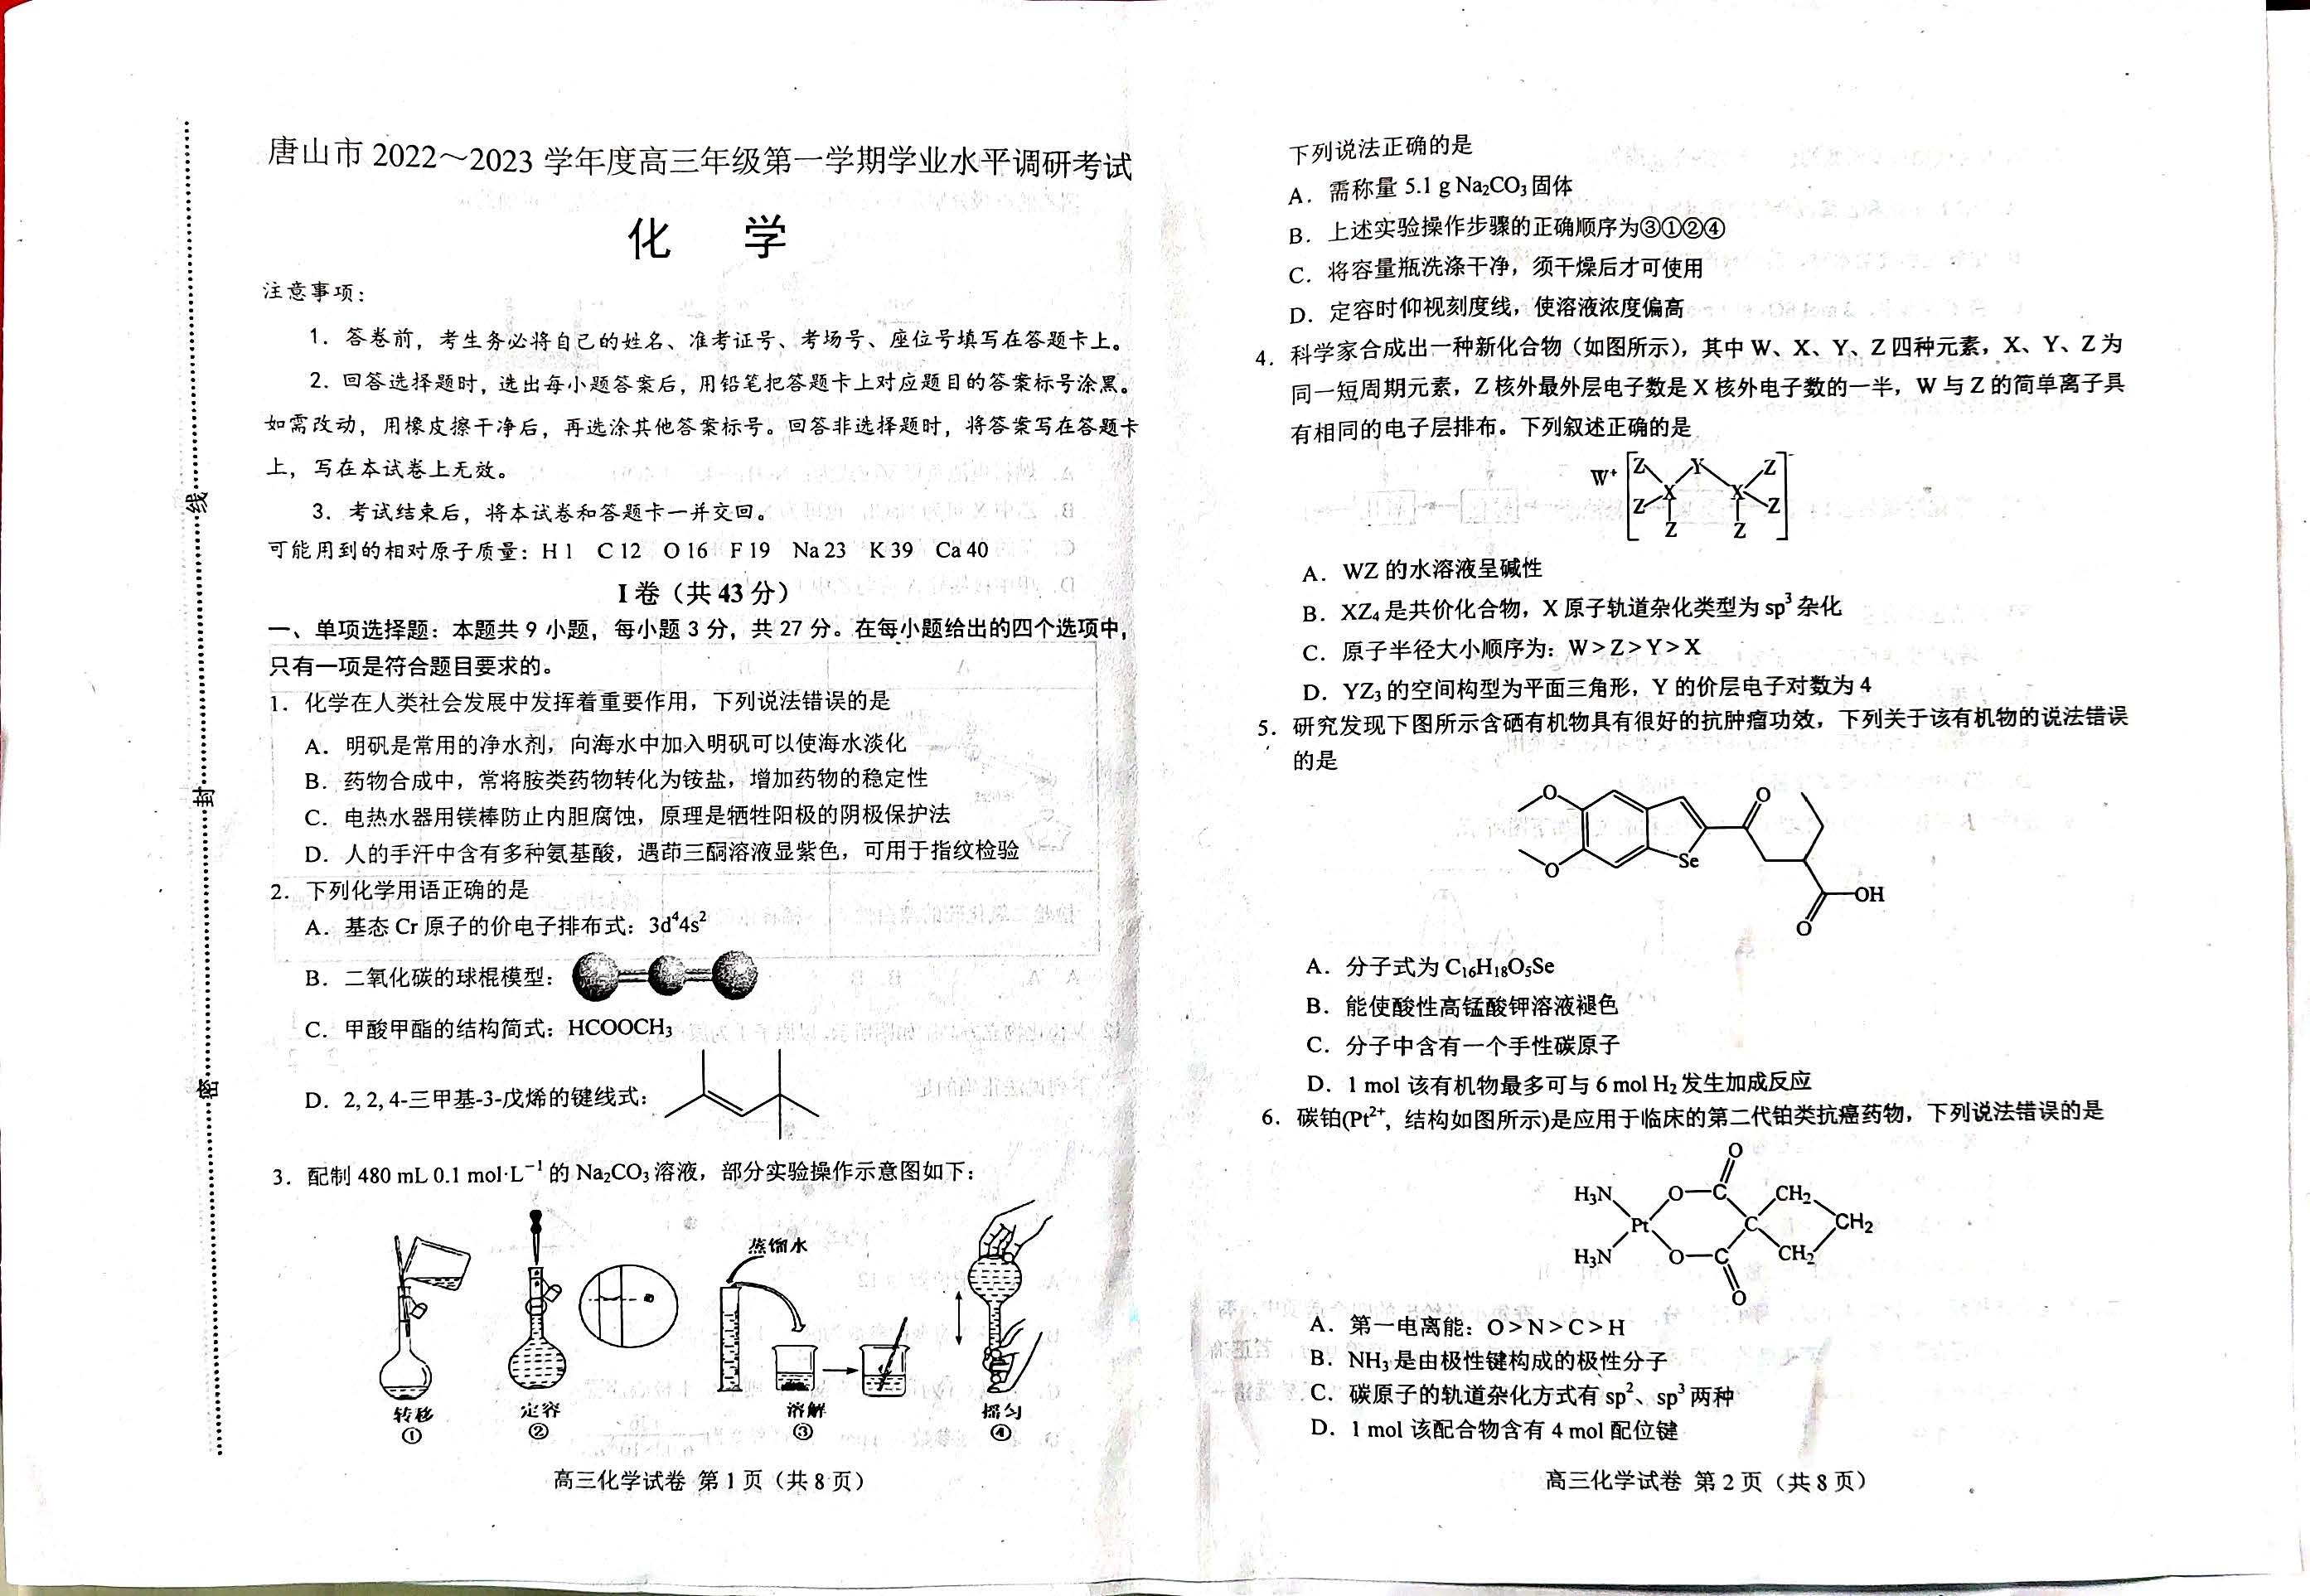 唐山市 2022～2023 学年度高三年级第一学期学业水平调研考试
化 学
注意事项：
1．答卷前，考生务必将自己的姓名、准考证号、考场号、座位号填写在答题卡上。
2．回答选择题时，选出每小题答案后，用铅笔把答题卡上对应题目的答案标号涂黑。
如需改动，用橡皮擦干净后，再选涂其他答案标号。回答非选择题时，将答案写在答题卡
上，写在本试卷上无效。
3．考试结束后，将本试卷和答题卡一并交回。
可能用到的相对原子质量：H 1 C 12 O 16 F 19 Na 23 K 39 Ca 40
I 卷（共 43 分）
一、单项选择题：本题共 9 小题，每小题 3 分，共 27 分。在每小题给出的四个选项中，
只有一项是符合题目要求的。
1．化学在人类社会发展中发挥着重要作用，下列说法错误的是
A．明矾是常用的净水剂，向海水中加入明矾可以使海水淡化
B．药物合成中，常将胺类药物转化为铵盐，增加药物的稳定性
C．电热水器用镁棒防止内胆腐蚀，原理是牺牲阳极的阴极保护法
D．人的手汗中含有多种氨基酸，遇茚三酮溶液显紫色，可用于指纹检验
2．下列化学用语正确的是
A．基态 Cr 原子的价电子排布式：3d⁴4s²
B．二氧化碳的球棍模型：
C．甲酸甲酯的结构简式：HCOOCH₃
D．2, 2, 4-三甲基-3-戊烯的键线式：
3．配制 480 mL 0.1 mol·L⁻¹ 的 Na₂CO₃ 溶液，部分实验操作示意图如下：
蒸馏水
转移 定容 溶解 摇匀
① ② ③ ④
高三化学试卷 第 1 页（共 8 页）
线
封
密
下列说法正确的是
A．需称量 5.1 g Na₂CO₃ 固体
B．上述实验操作步骤的正确顺序为③①②④
C．将容量瓶洗涤干净，须干燥后才可使用
D．定容时仰视刻度线，使溶液浓度偏高
4．科学家合成出一种新化合物（如图所示），其中 W、X、Y、Z 四种元素，X、Y、Z 为
同一短周期元素，Z 核外最外层电子数是 X 核外电子数的一半，W 与 Z 的简单离子具
有相同的电子层排布。下列叙述正确的是
W⁺ [ Z Y Z ]⁻
Z X X Z
Z Z
A．WZ 的水溶液呈碱性
B．XZ₄ 是共价化合物，X 原子轨道杂化类型为 sp³ 杂化
C．原子半径大小顺序为：W>Z>Y>X
D．YZ₃ 的空间构型为平面三角形，Y 的价层电子对数为 4
5．研究发现下图所示含硒有机物具有很好的抗肿瘤功效，下列关于该有机物的说法错误
的是
O O
O Se
OH
O
A．分子式为 C₁₆H₁₈O₅Se
B．能使酸性高锰酸钾溶液褪色
C．分子中含有一个手性碳原子
D．1 mol 该有机物最多可与 6 mol H₂ 发生加成反应
6．碳铂(Pt²⁺，结构如图所示)是应用于临床的第二代铂类抗癌药物，下列说法错误的是
O
H₃N O C CH₂
Pt C CH₂
H₃N O C CH₂
O
A．第一电离能：O>N>C>H
B．NH₃ 是由极性键构成的极性分子
C．碳原子的轨道杂化方式有 sp²、sp³ 两种
D．1 mol 该配合物含有 4 mol 配位键
高三化学试卷 第 2 页（共 8 页）